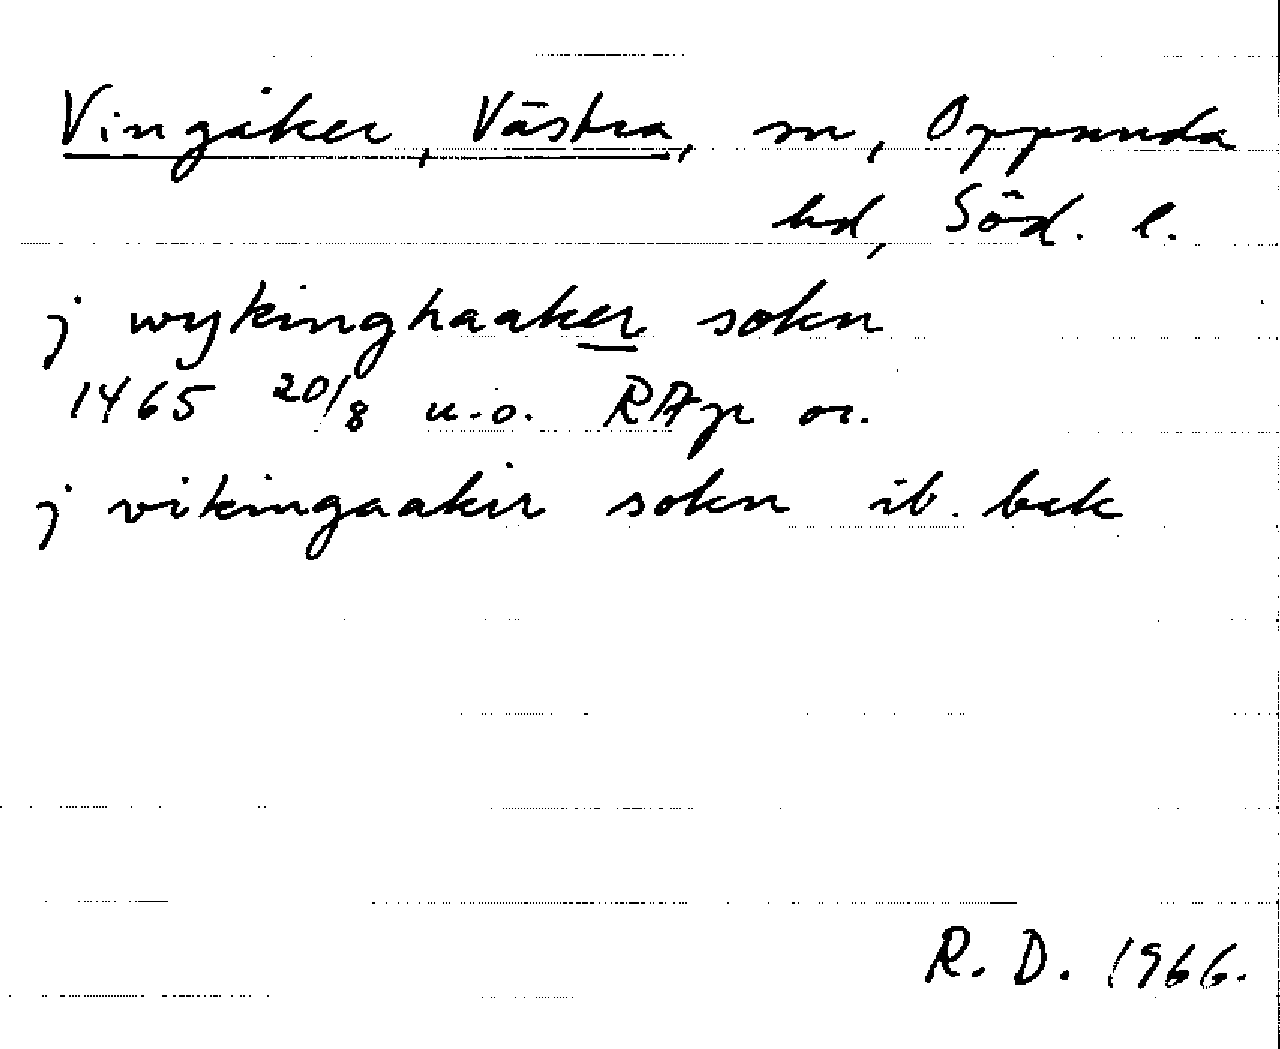 Vingåker, Västra, sn, Oppunda
hd, Söd. l.
j wykinghaaker sokn
1465 20/8 u.o. RAp or.
j vikingaakir sokn ib. bak
R. D. 1966.